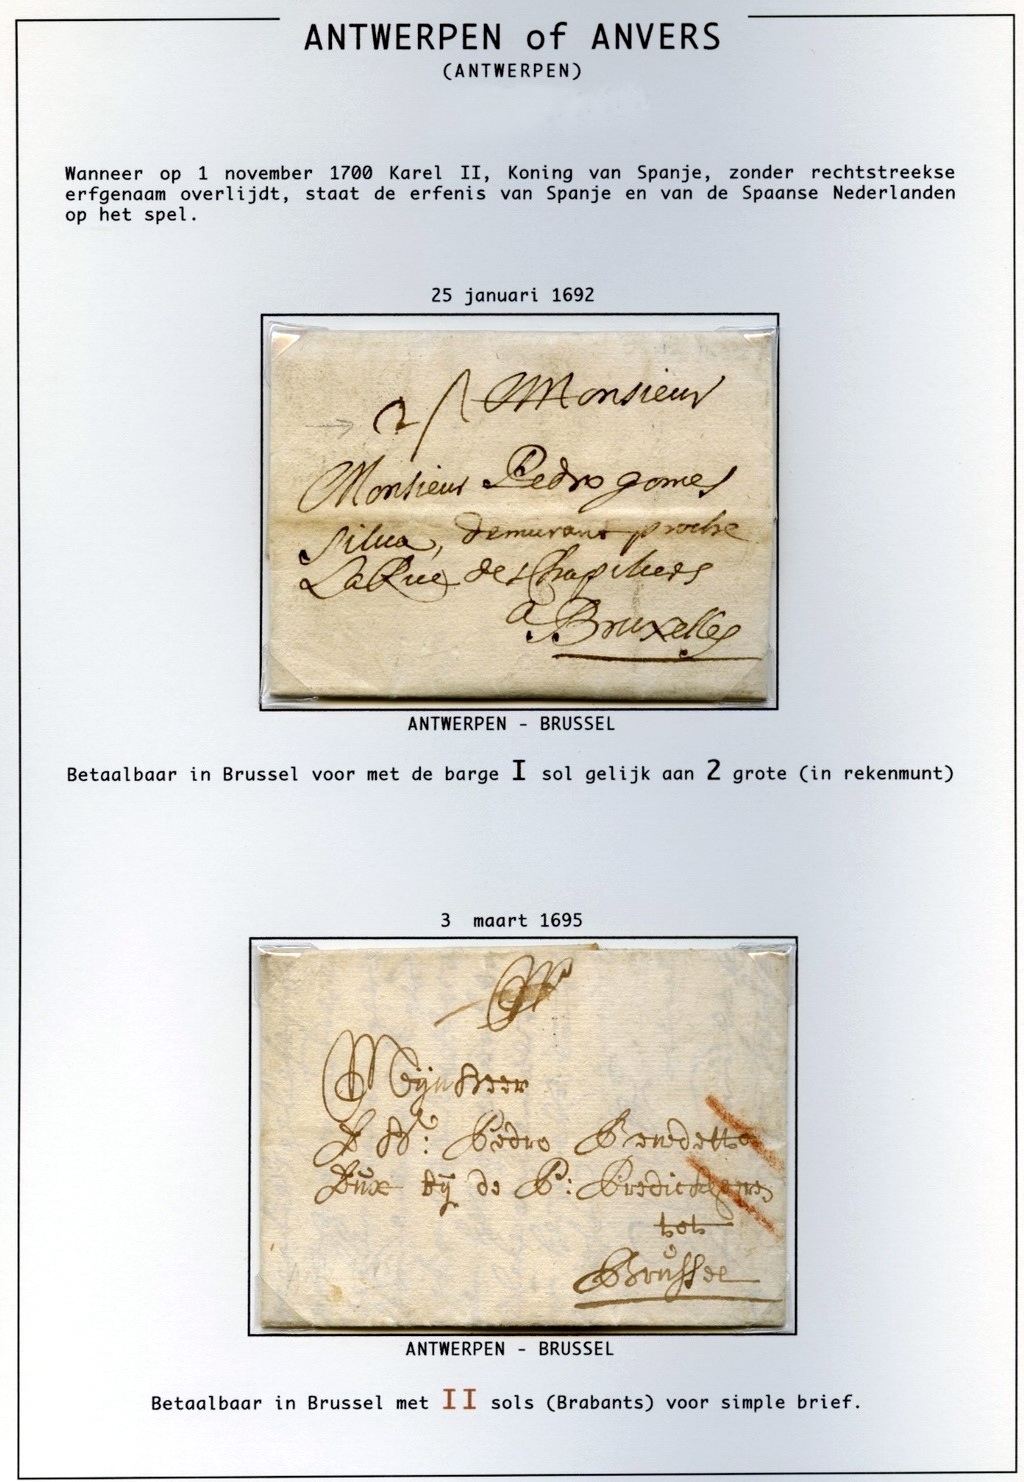 ANTWERPEN of ANVERS
(ANTWERPEN)
Wanneer op 1 november 1700 Karel II, Koning van Spanje, zonder rechtstreekse
erfgenaam overlijdt, staat de erfenis van Spanje en van de Spaanse Nederlanden
op het spel.
25 januari 1692
2 Monsieur
Monsieur Pedro gomes
Silva, demurant proche
La Rue des Chapiliers
a Bruxelles
ANTWERPEN - BRUSSEL
Betaalbaar in Brussel voor met de barge I sol gelijk aan 2 grote (in rekenmunt)
3 maart 1695
Mijn Heer
Pedro Benedetto
bij de P:
tot
Brussel
ANTWERPEN - BRUSSEL
Betaalbaar in Brussel met II sols (Brabants) voor simple brief.